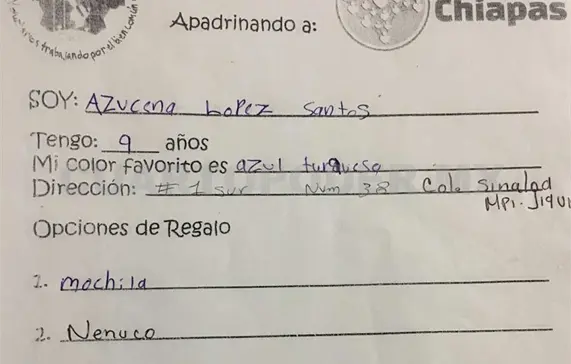 trabajando por el bien común
Apadrinando a:
Chiapas
SOY: Azucena Lopez Santos
Tengo: 9 años
Mi color favorito es azul turquesa
Dirección: # 1 sur Num 38 Col. Sinaloa
MPI. JIQUI
Opciones de Regalo
1. mochila
2. Nenuco